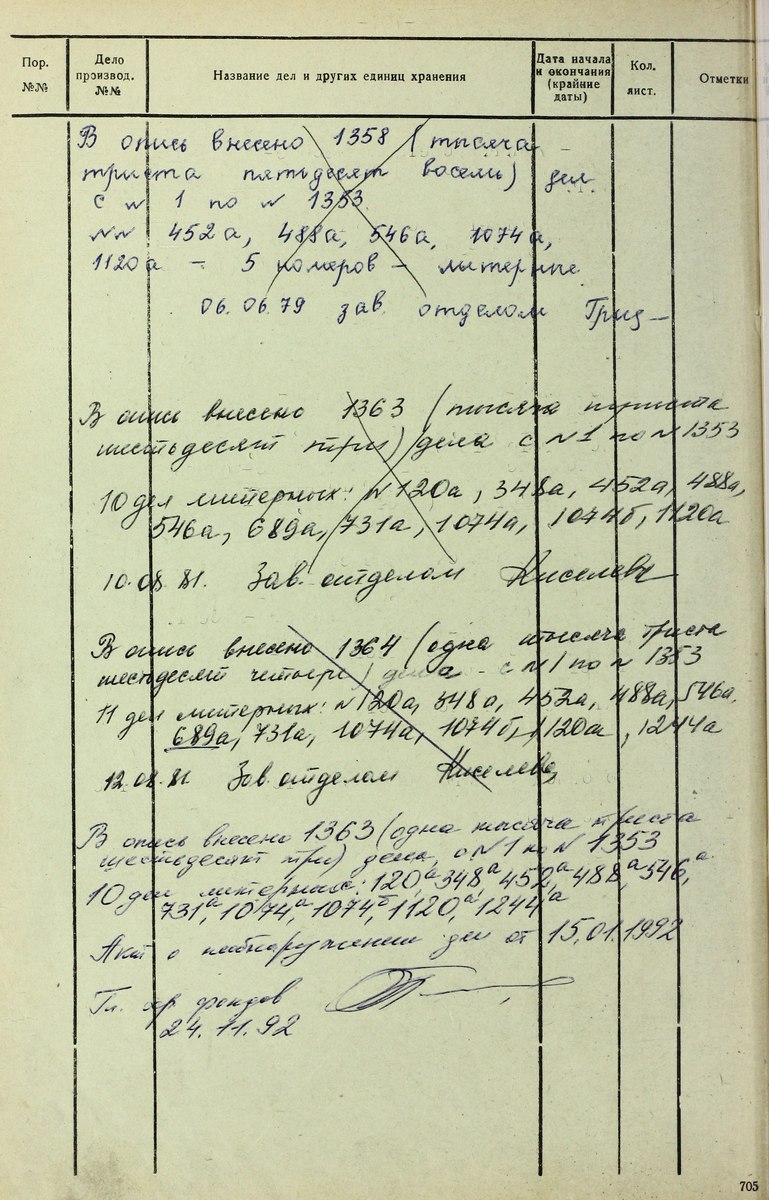 Пор. №№
Дело производ. №№
Название дел и других единиц хранения
Дата начала и окончания (крайние даты)
Кол. лист.
Отметки
В опись внесено 1358 (тысяча
триста пятьдесят восемь) дел
с № 1 по № 1353
№№ 452а, 488а, 546а, 1074а,
1120а – 5 номеров – литерные
06.06.79 зав. отделом
В опись внесено 1363 (тысяча триста
шестьдесят три) дела с №1 по №1353
10 дел литерных: №120а, 348а, 452а, 488а,
546а, 689а, 731а, 1074а, 1074б, 1120а
10.08.81. Зав. отделом Киселева
В опись внесено 1364 (одна тысяча триста
шестьдесят четыре) дела с №1 по № 1353
11 дел литерных: №120а, 348а, 452а, 488а, 546а,
689а, 731а, 1074а, 1074б, 1120а, 1244а
12.08.81 Зав. отделом Киселева
В опись внесено 1363 (одна тысяча триста
шестьдесят три) дела, с №1 по № 1353
10 дел литерных: 120а, 348а, 452а, 488а, 546а,
731а, 1074а, 1074б, 1120а, 1244а
Акт о необнаружении дел от 15.01.1992
Гл. хр. фондов
24.11.92
705